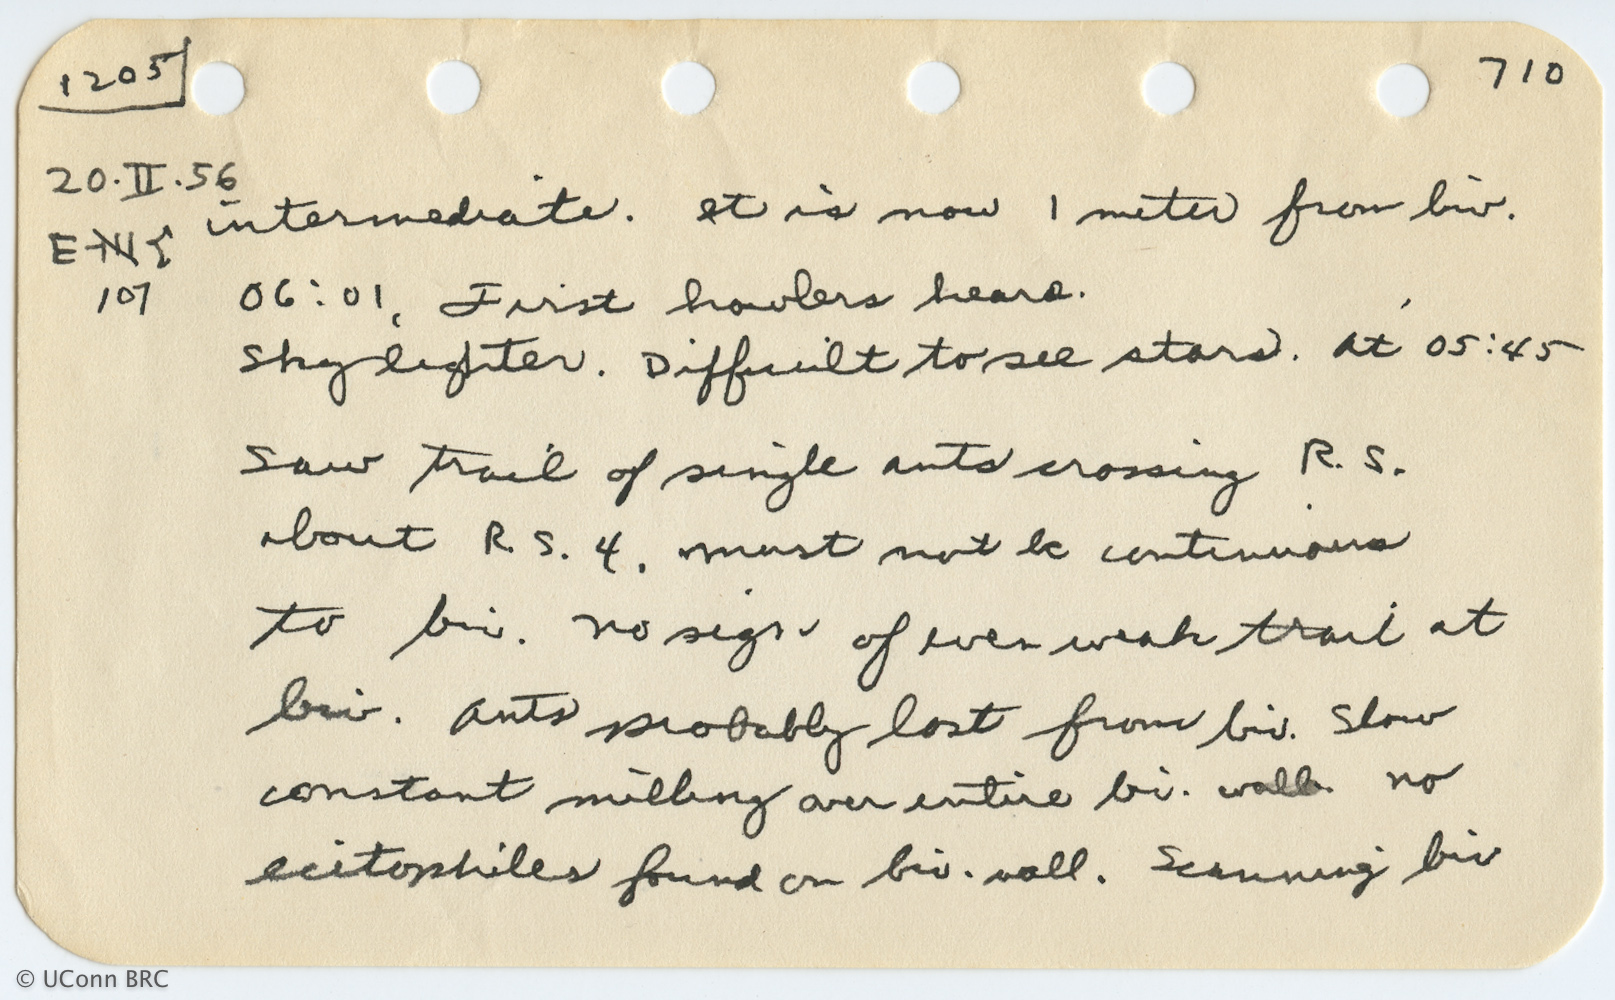 1205
710
20.II.56
intermediate. It is now 1 meter from biv.
E-
107
06:01, First howlers heard.
Sky lighter. Difficult to see stars. At 05:45
saw trail of single ants crossing R.S.
about R.S. 4. Must not be continuous
to biv. No sign of even weak trail at
biv. Ants probably lost from biv. Slow
constant milling over entire biv. wall. No
ecitophiles found on biv. wall. Scanning biv
© UConn BRC